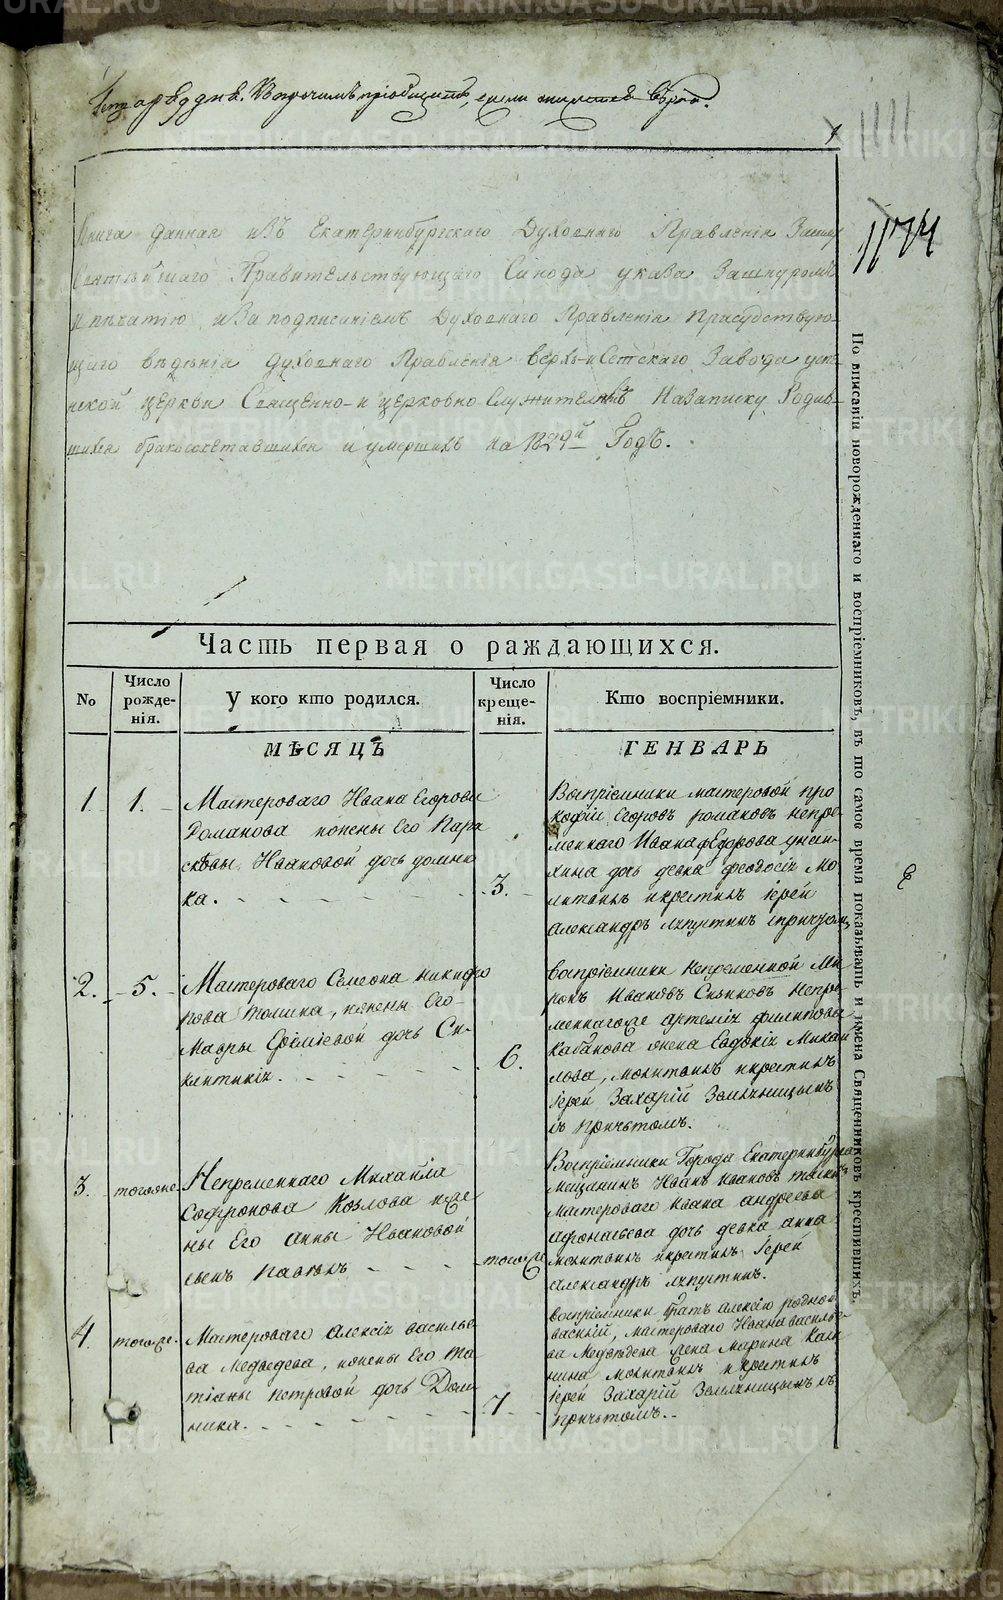 METRIKI.GASO-URAL.RU
1
1174
Книга данная изъ Екатеринбургскаго Духовнаго Правленія
Святѣйшаго Правительствующаго Синода указа Зашнуромъ
ипечатію иЗа подписаніемъ Духовнаго Правленія Присудствую-
щаго вѣденія духовнаго Правленія Верхъ-иСетскаго Завода
церкви Священно-и церковно-Служителямъ Назаписку Родив-
шихся бракосочетавшихся и умершихъ на 1829й Годъ.
По вписаніи новорожденнаго и воспріемниковъ, въ то самое время показывать и имена Священниковъ крестившихъ.
Часть первая о раждающихся.
No
Число рожде-нія.
У кого кто родился.
Число креще-нія.
Кто воспріемники.
МѢСЯЦЪ
ГЕНВАРЬ
1
1.
Мастероваго Ивана Егорова
Романова жены Его Пара
сковьи Ивановой дочь домни
ка.
3.
Воспріемники мастеровой про
кофій Егоровъ романовъ непре
меннаго Ивана федорова
дочь девка феодосія мо
литвилъ икрестилъ Іерей
александръ
2.
5.
Мастероваго Семена никифо
рова томина, жены Его
Мавры Ефимiевой дочь Син-
клитикія.
6.
воспріемники непременной Ми
ронъ Ивановъ непре
меннагоже артемія филипова
Кабакова жена Евдокія Михай
лова, молитвилъ икрестилъ
Іерей Захарій Земляницынъ
съ Причьтомъ.
3.
тогоже
Непременнаго Михаила
Софронова Козлова же
ны Его анны Ивановой
сынъ павелъ
тогоже
Воспріемники Города Екатеринбурга
мещанинъ Иванъ Ивановъ
мастероваго Ивана андреева
афонасьева дочь девка анна
молитвилъ икрестилъ Іерей
александръ
4.
тогоже.
Мастероваго алексія василье
ва Медведева, жены Его та
тіаны петровой дочь Дом
ника.
7
воспріемники братъ алексію родной
василій, мастероваго Ивана василье
ва Медведева жена Марина Кали
нина молитвилъ икрестилъ
Іерей Захарій Земляницынъ съ
причьтомъ.